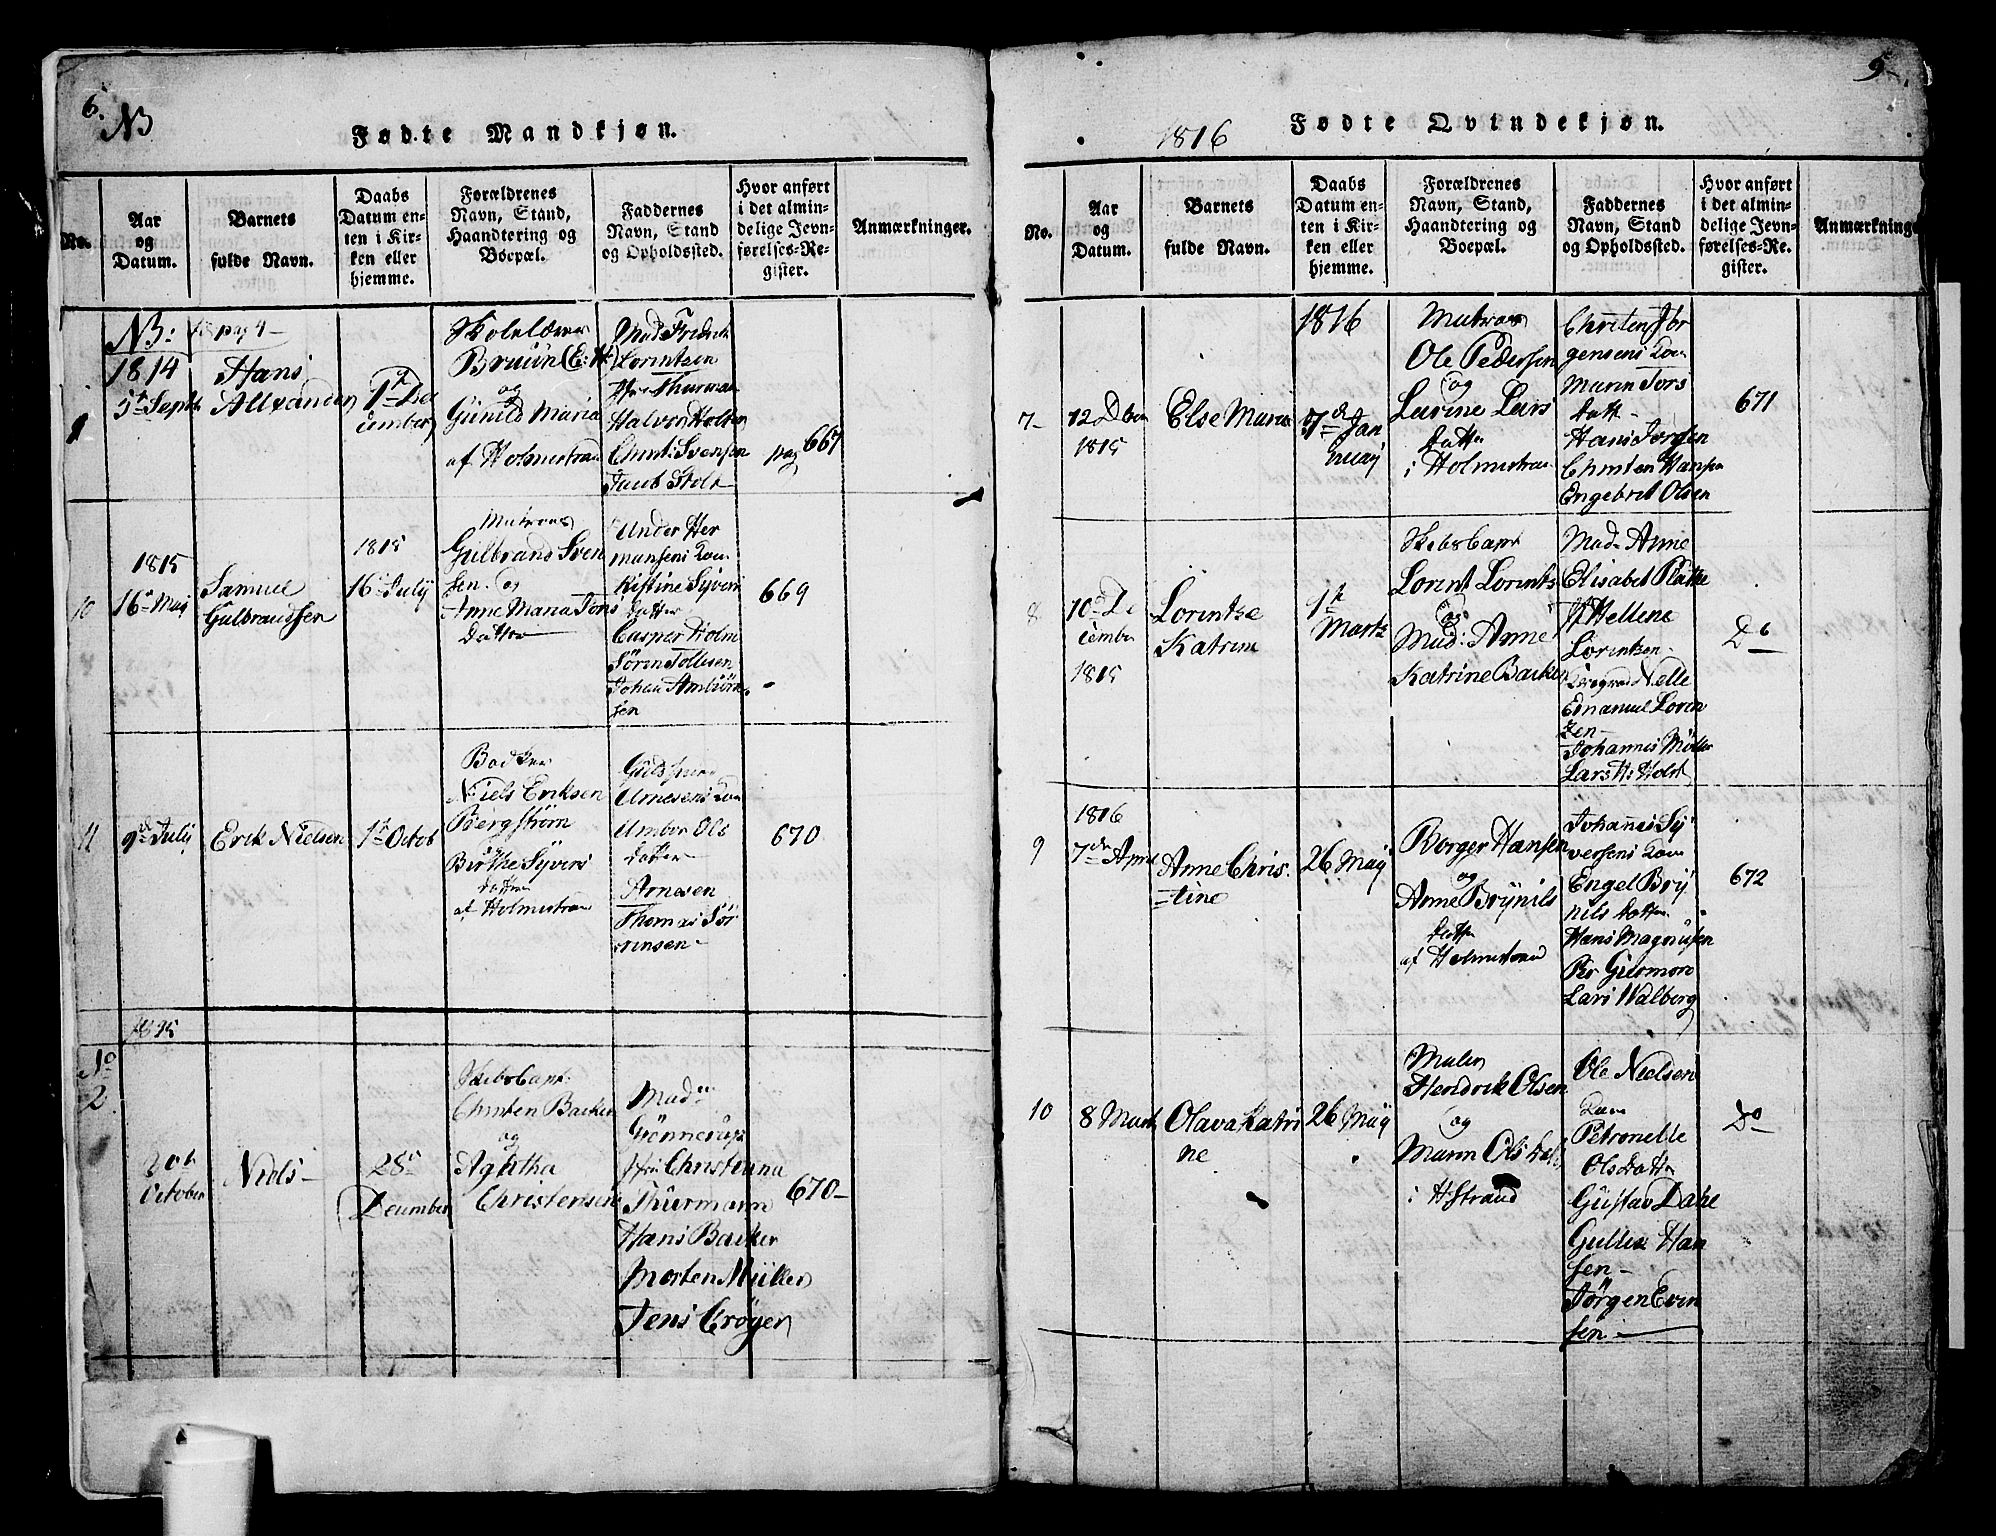 6.
NB
Fødte Mandkjøn.
No.
Aar
og
Datum.
Barnets
fulde Navn.
Daabs
Datum en-
ten i Kir-
ken eller
hjemme.
Forældrenes
Navn, Stand,
Haandtering og
Boepæl.
Faddernes
Navn, Stand
og Opholdssted.
Hvor anført
i det almin-
delige Jevn-
førelses-Re-
gister.
Anmærkninger.
NB: pag 4
9
1814
5te Septb
Hans
Allexander
1te De
cember
Skolelærer
Bruun (E: H)
og
Gunild Maria
af Holmestran
Mad Fridrik
Lorintsen
Jfr Thurman
Halvor Holter
Christ: Svensen
Jacob Stolt
pag 667
10
1815
16de Maij
Samuel
Gulbrandsen
1815
16 Julij
Matroes
Gulbrand Sven
sen og
Anne Maria Tors
datter
Under Her
mansens Kone
Kistine Syvers
datter
Casper Holm
Søren Tollesen
Johan Ambiørn
sen
669
11
9de Julij
Erik Nielsen
1te Octob
Bødker
Niels Eriksen
Bergstrøm
og
Birthe Syvers
datter
af Holmestran
Arnesens Kone
Ambor Ols
datter
Arnesen
Thomas Sør
rensen
670
1815
No
2
20de
October
Niels
28de
December
Skibs Capt:
Christen Backer
og
Agatha
Christensen
Mad:
Grønnerup
Jfr: Christianna
Thurmann
Hans Backer
Morten Müller
Jens Crøger
670
5
1816
Fødte Qvindekjøn.
No.
Aar
og
Datum.
Barnets
fulde Navn.
Daabs
Datum en-
ten i Kir-
ken eller
hjemme.
Forældrenes
Navn, Stand,
Haandtering og
Boepæl.
Faddernes
Navn, Stand
og Opholdssted.
Hvor anført
i det almin-
delige Jevn-
førelses-Re-
gister.
Anmærkninge
7
12 Dbr
1815
Else Maria
1816
7de Jan
nuarj
Matroes
Ole Pedersen
og
Lurine Lars
datter
i Holmestran
Christen Jør
gensens Kone
Marin Tors
datt
Hans Jørgsen
Christen Hansen
Engebret Olsen
671
8
10de De
cember
1815
Lorintze
Katrine
1te
Marts
Skibs Capt
Lorent Lorents
og
Mad: Anne
Katrine Backer
Mad: Anne
Elisabet Plathe
Jf Hellene
Lorintzen
Nelle
Emanuel Loren
zen
Johannes Møller
Lars H: Holst
Do
9
1816
7de April
Anne Chris
tine
26 Maij
Borger Hansen
og
Anne Brynils
datter
af Holmestrand
Johannes Sy
versens Kone
Engel Bry
nils datter
Hans Magnusen
Per Gulmore
Lars Walberg
672
10
8 Marts
Olava Katri
ne
26 Maij
Maler
Hendrik Olsen
og
Maren Ols dat
i H:Strand
Ole Nielsen
Kone
Petronelle
Olsdatter
Gustav Dahe
Gullik Han
sen
Jørgen Even
sen
Do